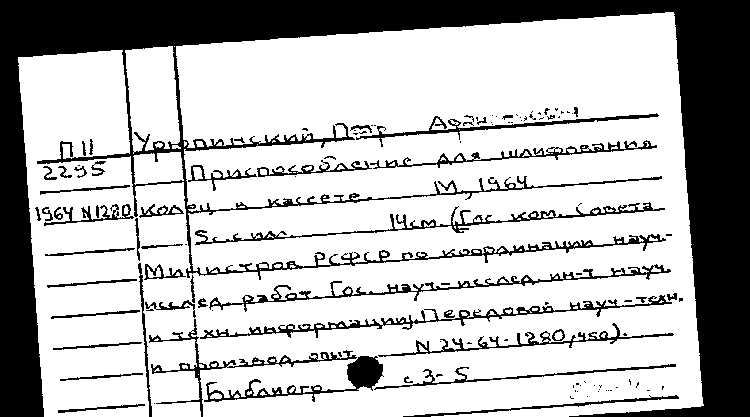 П11 Урюпинский, Петр
2295 Приспособление для шлифования
1964 N1280 колец в кассете. М., 1964.
5с. с илл. 14см. (Гос. ком. Совета
Министров РСФСР по координации науч.-
исслед. работ. Гос. науч.-исслед. ин-т науч.
и техн. информации). Передовой науч.-техн.
и производ. опыт. N 24-64-1280/450).
Библиогр. с 3-5